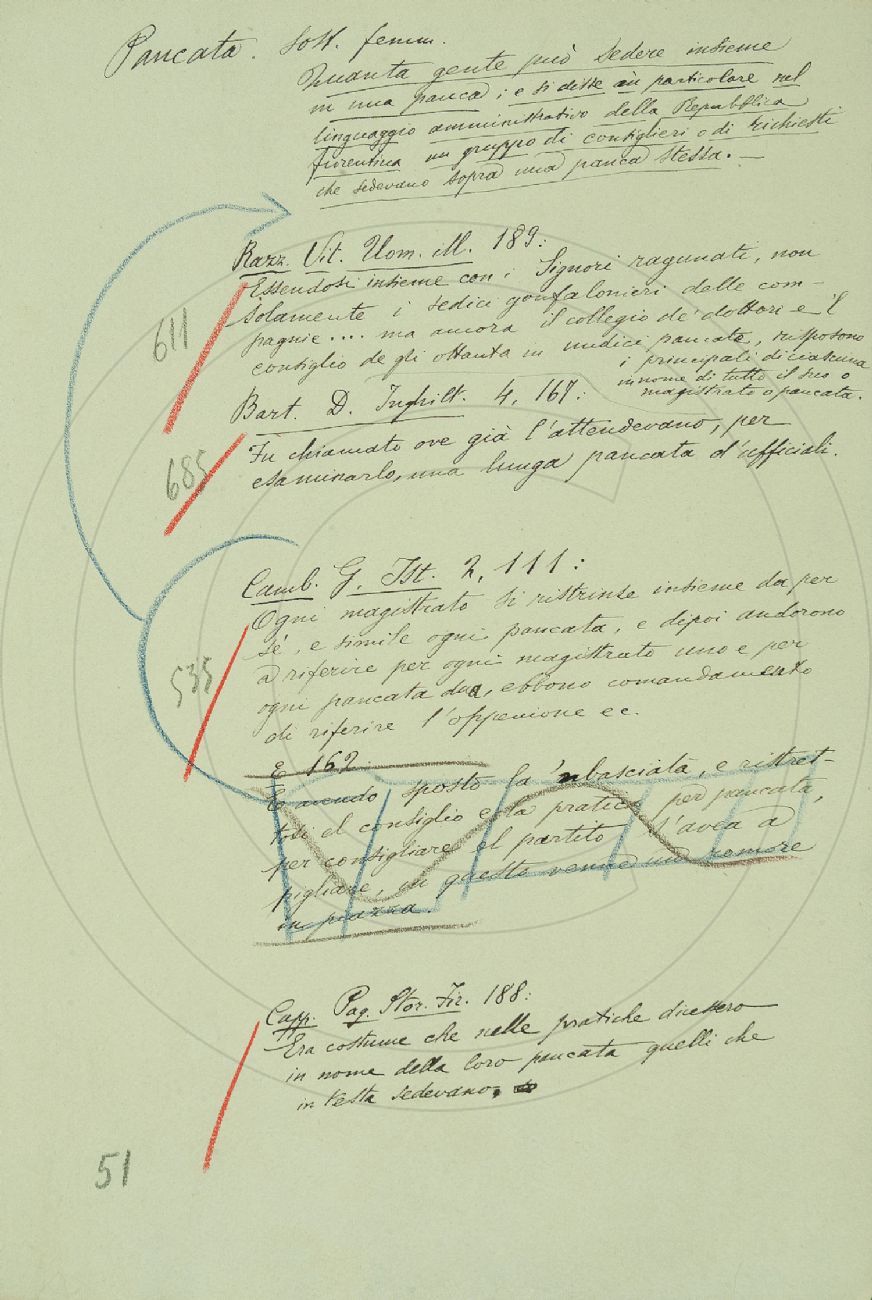 Pancata. Sost. femm.
Quanta gente può sedere insieme
in una panca; e si disse in particolare nel
linguaggio amministrativo della Repubblica
fiorentina un gruppo di consiglieri o di richiesti
che sedevano sopra una panca stessa. —
Razz. Vit. Uom. ill. 189:
Essendosi insieme con i Signori ragunati, non
solamente i sedici gonfalonieri delle com-
pagnie.... ma ancora il collegio de' dottori e il
consiglio degli ottanta in undici pancate, risposono
i principali di ciascuna
in nome di tutto il suo o
magistrato o pancata.
611
Bart. D. Inghilt. 4, 167:
Fu chiamato ove già l'attendevano, per
esaminarlo, una lunga pancata d'ufficiali.
685
Camb. G. Ist. 2, 111:
Ogni magistrato si ristrinse insieme da per
sé, e simile ogni pancata, e dipoi andorono
a riferire per ogni magistrato uno e per
ogni pancata dua, ebbono comandamento
di riferire l'oppenione ec.
535
E 162:
E avendo sposto la 'mbasciata, e ristret-
tosi el consiglio e la pratica per pancata,
per consigliare el partito s'avea a
pigliare, in questo venne uno romore
in piazza.
Capp. Pag. Stor. Fir. 188:
Era costume che nelle pratiche dicessero
in nome della loro pancata quelli che
in testa sedevano.
51